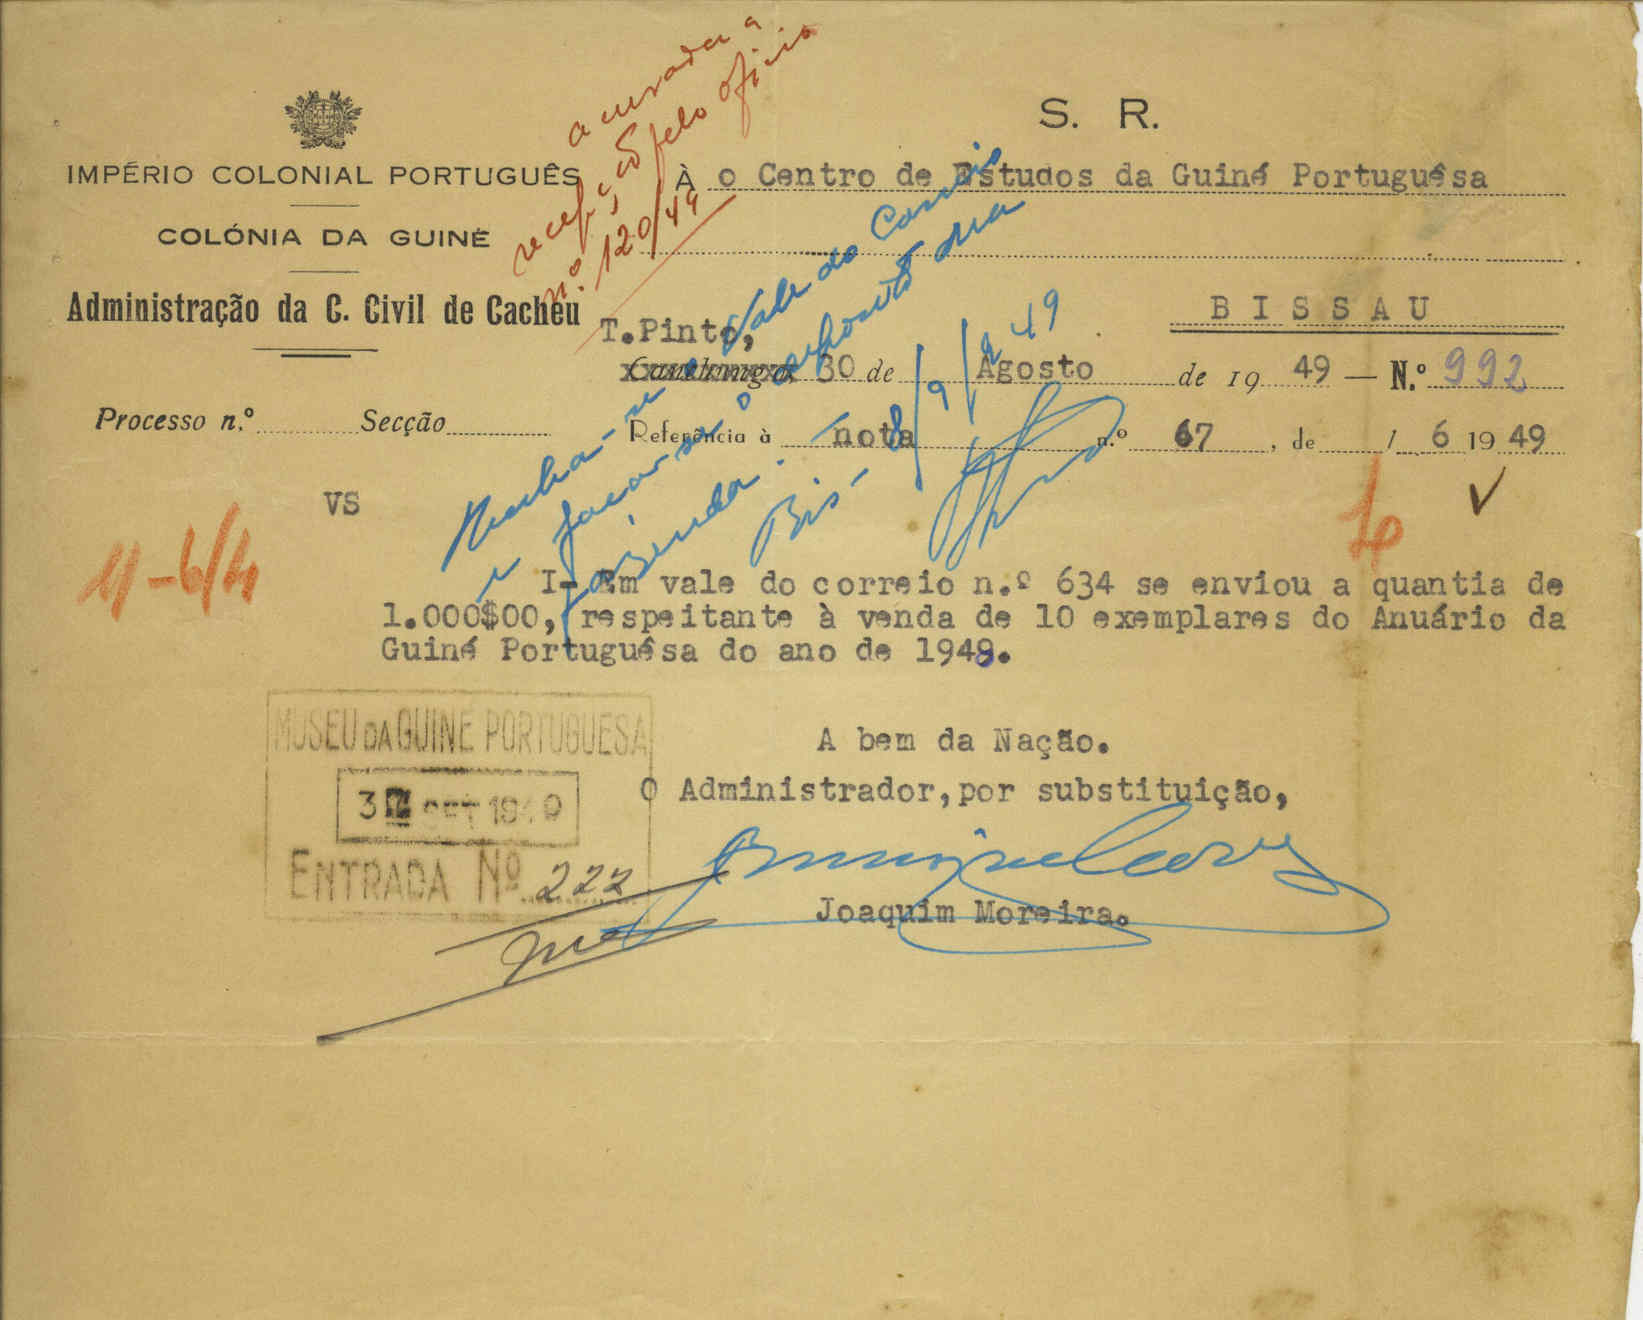 acusada a
recepção pelo oficio
n.º 120/49
S. R.
IMPÉRIO COLONIAL PORTUGUÊS
À o Centro de Estudos da Guiné Portuguêsa
COLÓNIA DA GUINÉ
Administração da C. Civil de Cacheu
BISSAU
T.Pinto,
30 de Agosto de 19 49 — N.º 992
Processo n.º Secção
Referência à nota n.º 67, de / 6 19 49
VS
o Vale do Correio
Fazenda.
Bis- 8/9/949
11-6/4
I- Em vale do correio n.º 634 se enviou a quantia de
1.000$00, respeitante à venda de 10 exemplares do Anuário da
Guiné Portuguêsa do ano de 1948.
MUSEU DA GUINÉ PORTUGUESA
3 SET 1949
ENTRADA Nº 222
A bem da Nação.
O Administrador,por substituição,
Joaquim Moreira.